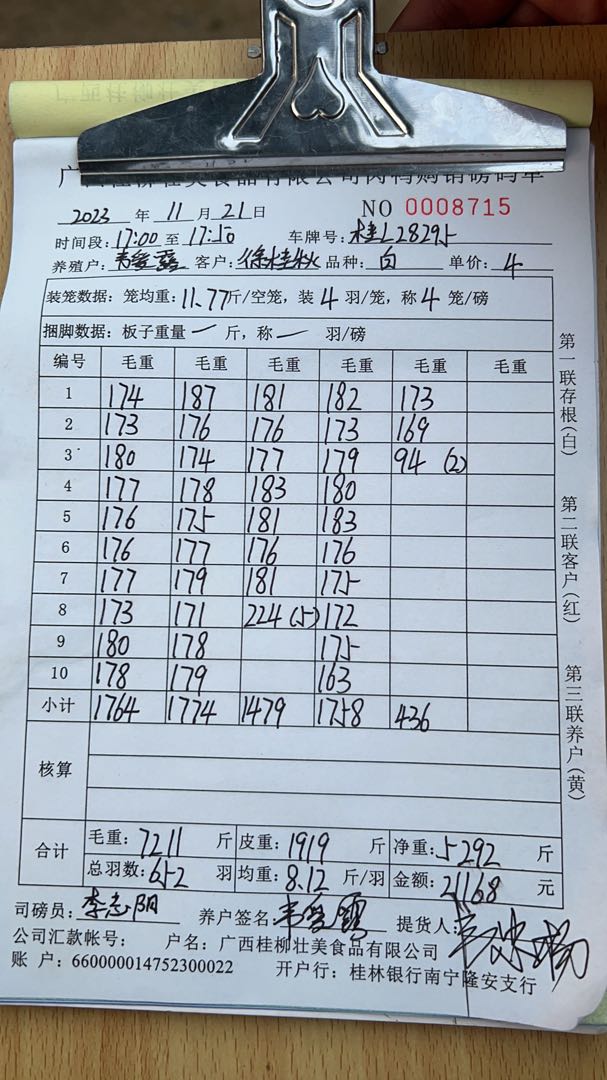 2023 年 11 月 21 日 NO 0008715
时间段: 17:00 至 17:50 车牌号: 桂L28295
养殖户: 客户: 徐桂秋 品种: 白 单价: 4
装笼数据: 笼均重: 11.77斤/空笼, 装 4 羽/笼, 称 4 笼/磅
捆脚数据: 板子重量 一 斤, 称 一 羽/磅
编号 毛重 毛重 毛重 毛重 毛重 毛重
1 174 187 181 182 173
2 173 176 176 173 169
3 180 174 177 179 94 (2)
4 177 178 183 180
5 176 175 181 183
6 176 177 176 176
7 177 179 181 175
8 173 171 224 (5) 172
9 180 178 175
10 178 179 163
小计 1764 1774 1479 1758 436
核算
合计 毛重: 7211 斤 皮重: 1919 斤 净重: 5292 斤
总羽数: 652 羽 均重: 8.12 斤/羽 金额: 21168 元
司磅员: 李志阳 养户签名: 提货人:
公司汇款帐号: 户名: 广西桂柳壮美食品有限公司
账 户: 660000014752300022 开户行: 桂林银行南宁隆安支行
第一联存根(白)
第二联客户(红)
第三联养户(黄)